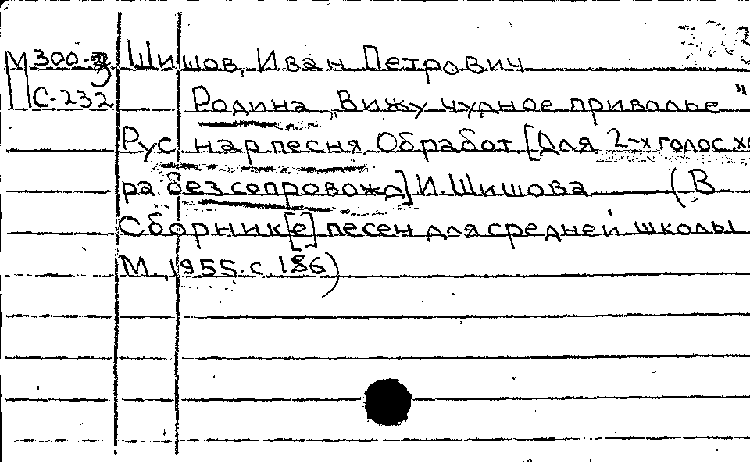 М 300-3 Шишов, Иван Петрович
С-232 Родина „Вижу чудное приволье"
Рус нар песня Обработ [Для 2-х голос хо
ра без сопровожд] И. Шишова (В
Сборник[е] песен для средней школы
М., 1955. с. 186)